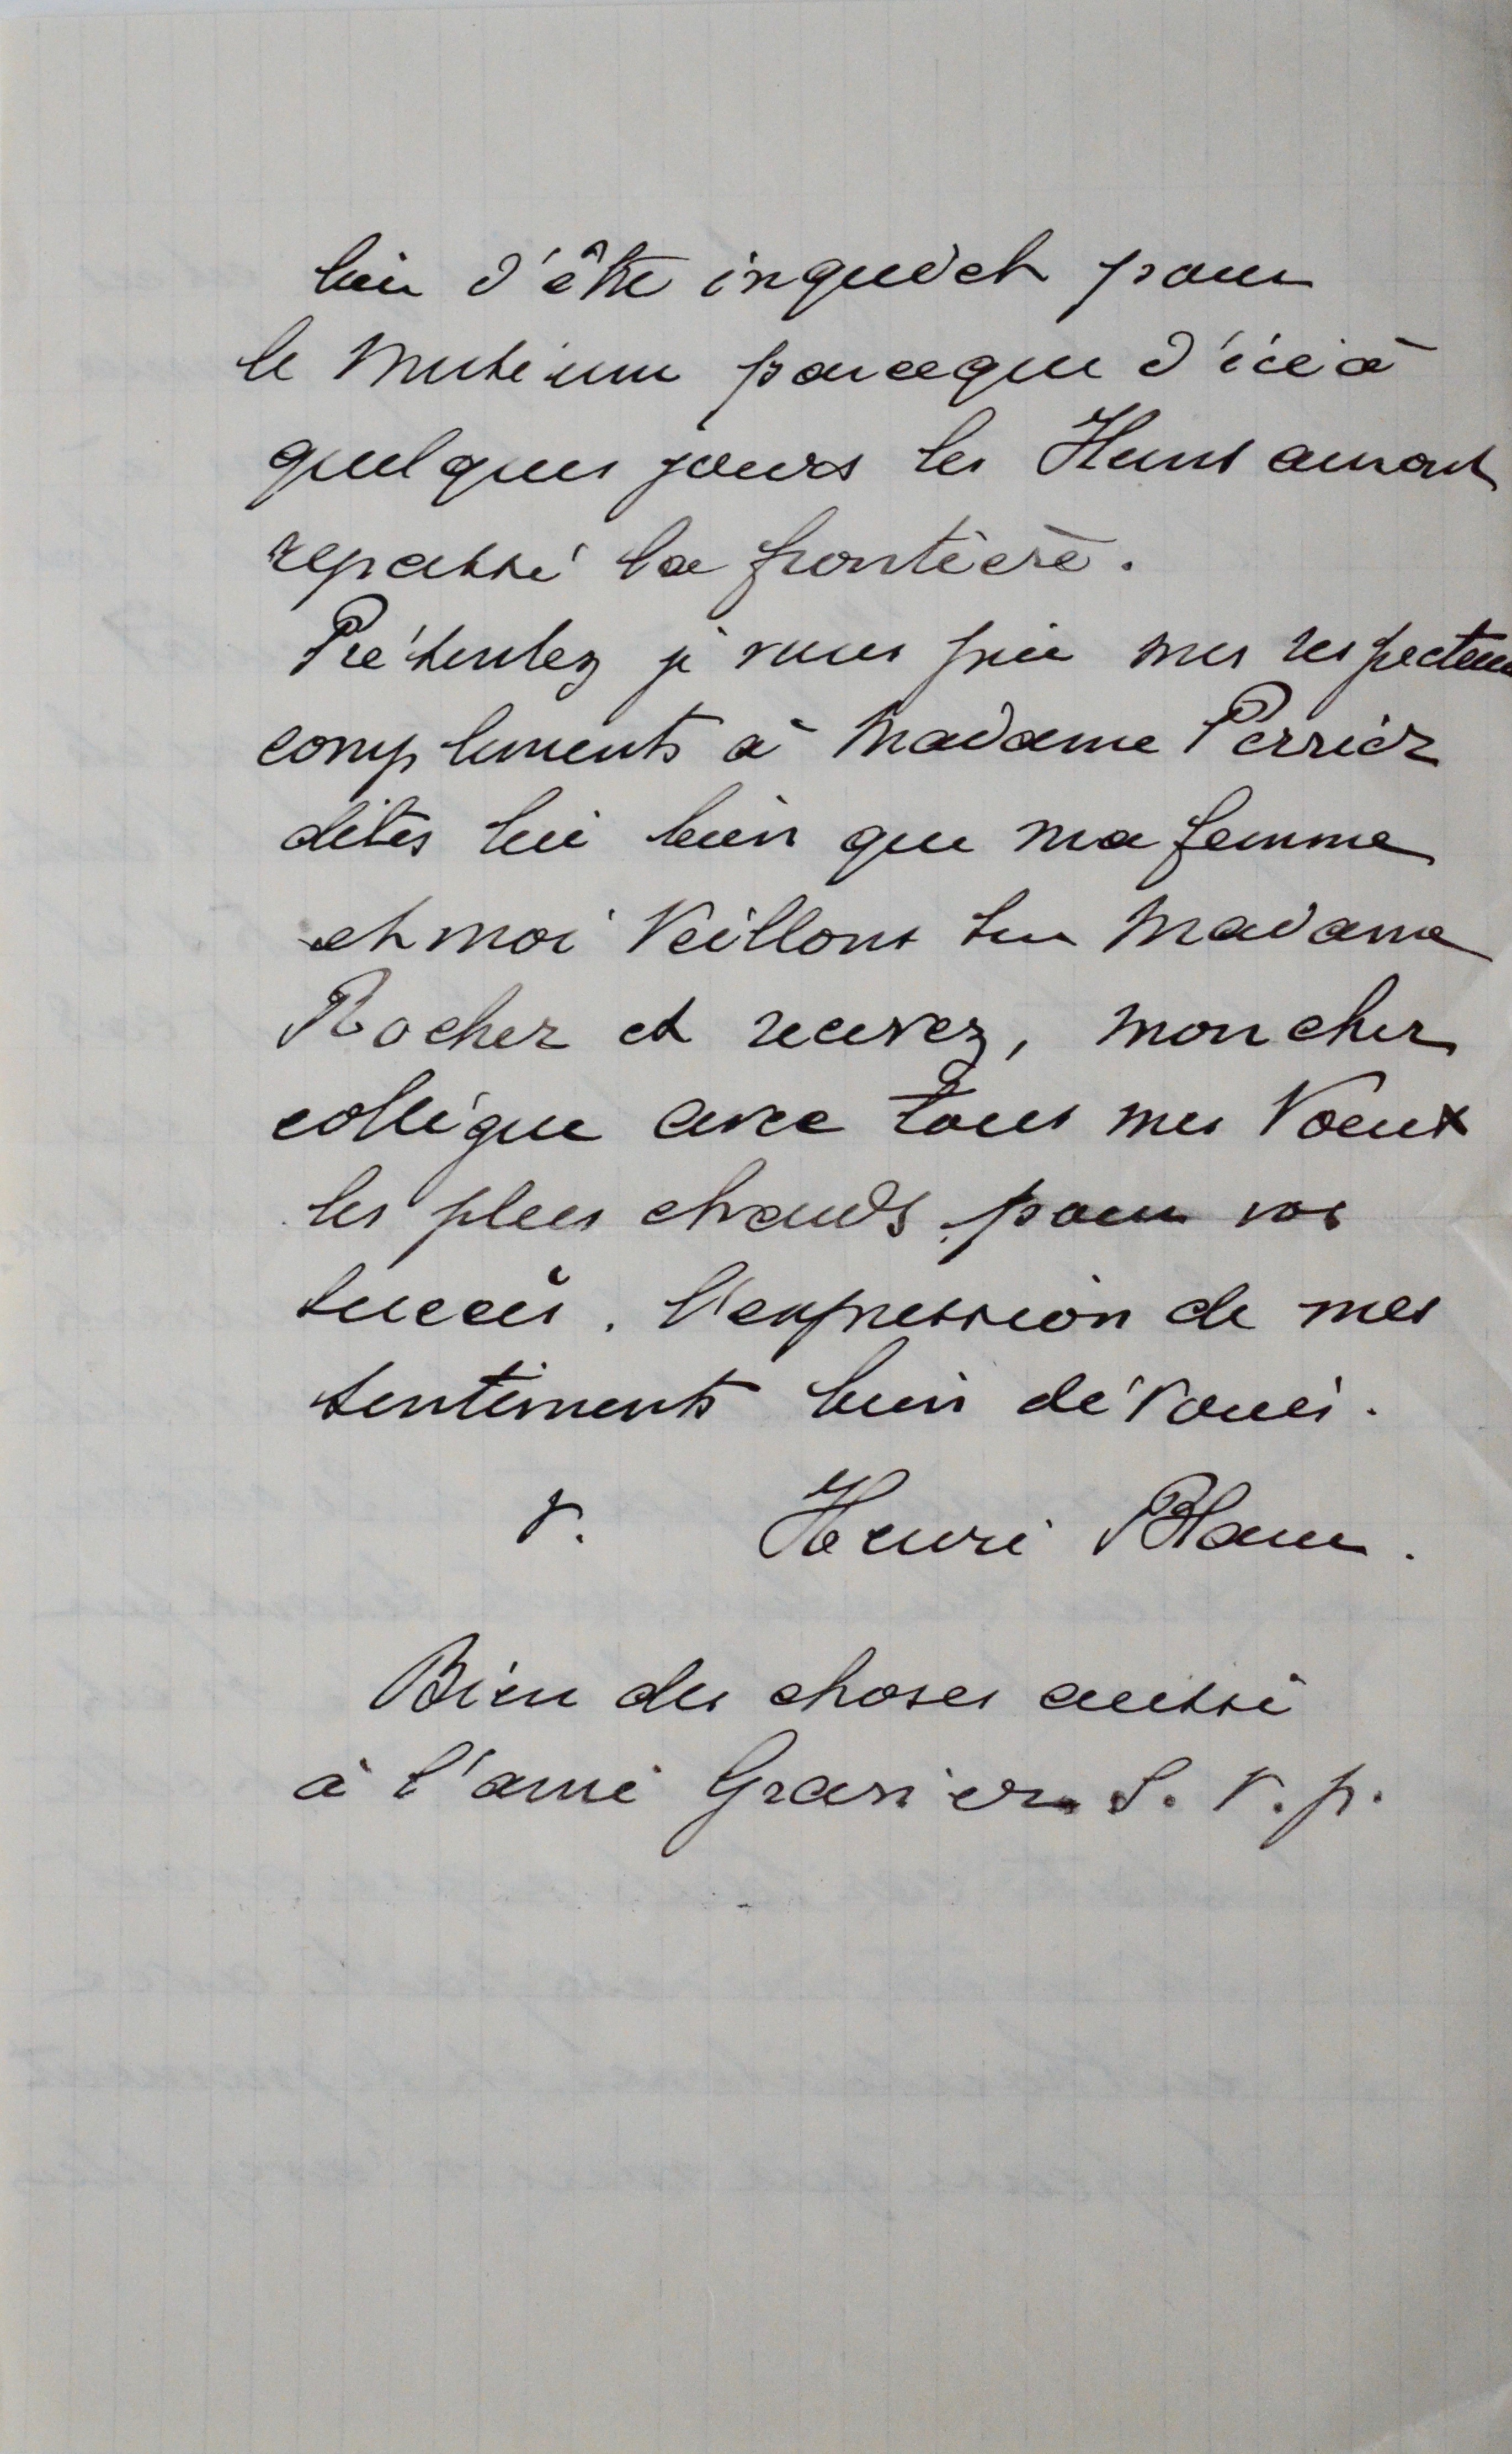 loin d'être inquiet pour
le Muséum parceque d'ici à
quelques jours les Huns auront
repassé la frontière.
Présentez je vous prie mes respectueux
compliments à Madame Perrier
dites lui bien que ma femme
et moi Veillons sur Madame
Rocher et recevez, mon cher
collègue avec tous mes Voeux
les plus chauds pour vos
succès. l'expression de mes
sentiments bien dévoués.
V. Henri
Bien des choses aussi
à l'ami S. V. p.